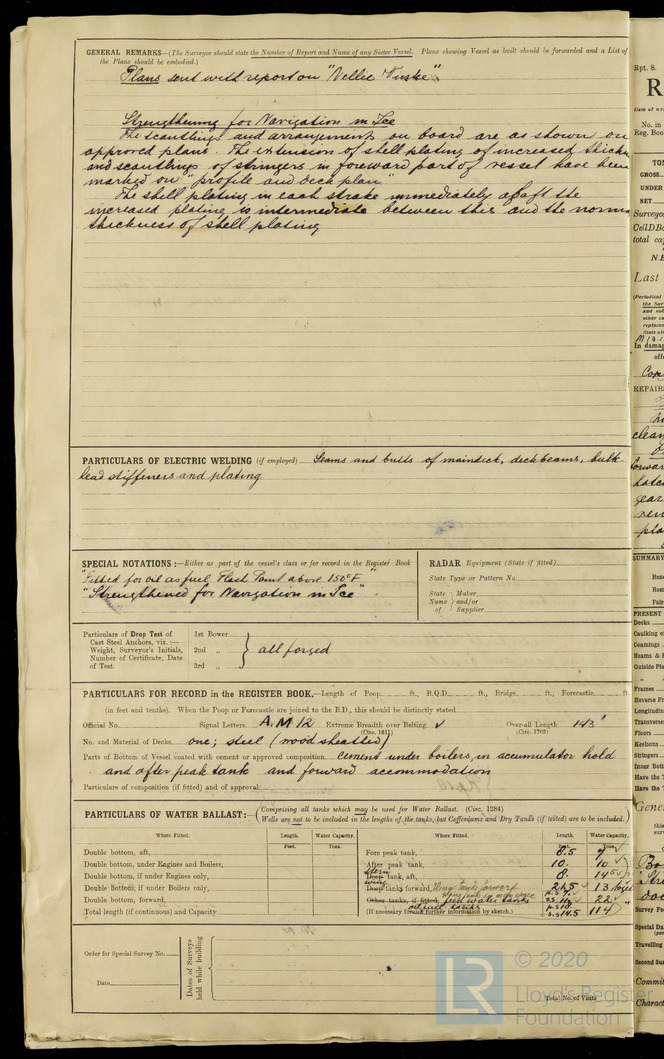 GENERAL REMARKS—(The Surveyor should state the Number of Report and Name of any Sister Vessel. Plans showing Vessel as built should be forwarded and a List of
the Plans should be embodied.)
Plans sent with report on "Nellie
Strengthening for Navigation in Ice
The scantlings and arrangement on board are as shown on
approved plans. The extension of shell plating of increased thickn
and scantlings of stringers in foreward part of vessel have been
marked on "profile and deck plan"
The shell plating in each strake immediately abaft the
increased plating is intermediate between this and the norma
thickness of shell plating
PARTICULARS OF ELECTRIC WELDING (if employed) Seams and butts of maindeck, deckbeams, bulk-
head stiffeners and plating
SPECIAL NOTATIONS:—Either as part of the vessel's class or for record in the Register Book
"Fitted for oil as fuel Flash Point above 150°F"
"Strengthened for Navigation in Ice"
RADAR Equipment (State if fitted)
State Type or Pattern No.
State Name of } Maker and/or Supplier
Particulars of Drop Test of
Cast Steel Anchors, viz.:—
Weight, Surveyor's Initials,
Number of Certificate, Date
of Test.
1st Bower
2nd „
3rd „
all forged
PARTICULARS FOR RECORD in the REGISTER BOOK.—Length of Poop ft., R.Q.D. ft., Bridge ft., Forecastle ft.
(in feet and tenths). When the Poop or Forecastle are joined to the B.D., this should be distinctly stated
Official No. Signal Letters A.M 12 Extreme Breadth over Belting ✓ Over-all Length 143'
(Circ. 1611) (Circ. 1703)
No. and Material of Decks one; steel (wood sheathed)
Parts of Bottom of Vessel coated with cement or approved composition cement under boilers, in accumulator hold
and after peak tank and forward accommodation
Particulars of composition (if fitted) and of approval
PARTICULARS OF WATER BALLAST:—(Comprising all tanks which may be used for Water Ballast. (Circ. 1284)
Wells are not to be included in the lengths of the tanks, but Cofferdams and Dry Tanks (if tested) are to be included.)
Where Fitted. Length. Water Capacity. Where Fitted. Length. Water Capacity.
Feet. Tons. Feet. Tons.
Double bottom, aft, Fore peak tank, 8.5
Double bottom, under Engines and Boilers, After peak tank, 10. 10 ✓
Double bottom, if under Engines only, Stern Deep tank, aft, 8. 14
Double bottom, if under Boilers only, wing Deep tanks, forward, Wing tank forward 21.5 13
Double bottom, forward, Other tanks, if fitted, feed water tanks 22
Total length (if continuous) and Capacity (If necessary furnish further information by sketch.) oil fuel tanks p.s 18. s.s 14.5 114
Order for Special Survey No.
Date
Dates of Surveys
held while building
Total No. of Visits
LR
© 2020
Lloyd's Register
Foundation
Rpt. 8.
R
No. in
Reg. Boo
TO
GROSS
UNDER
NET
Surveyo
CellD.Bo
total ca
N.B
Last
(Periodical
In damag
Cop
REPAIRS
clean
SUMMARY
PRESENT
Decks
Caulking o
Coamings
Beams & F
Outside Pla
Frames
Reverse Fr
Longitudin
Transverse
Floors
Keelsons
Stringers
Inner Bott
Have the
Have the
Gene
Survey Fe
Special Da
Travelling
Second Sur
Commit
Charact